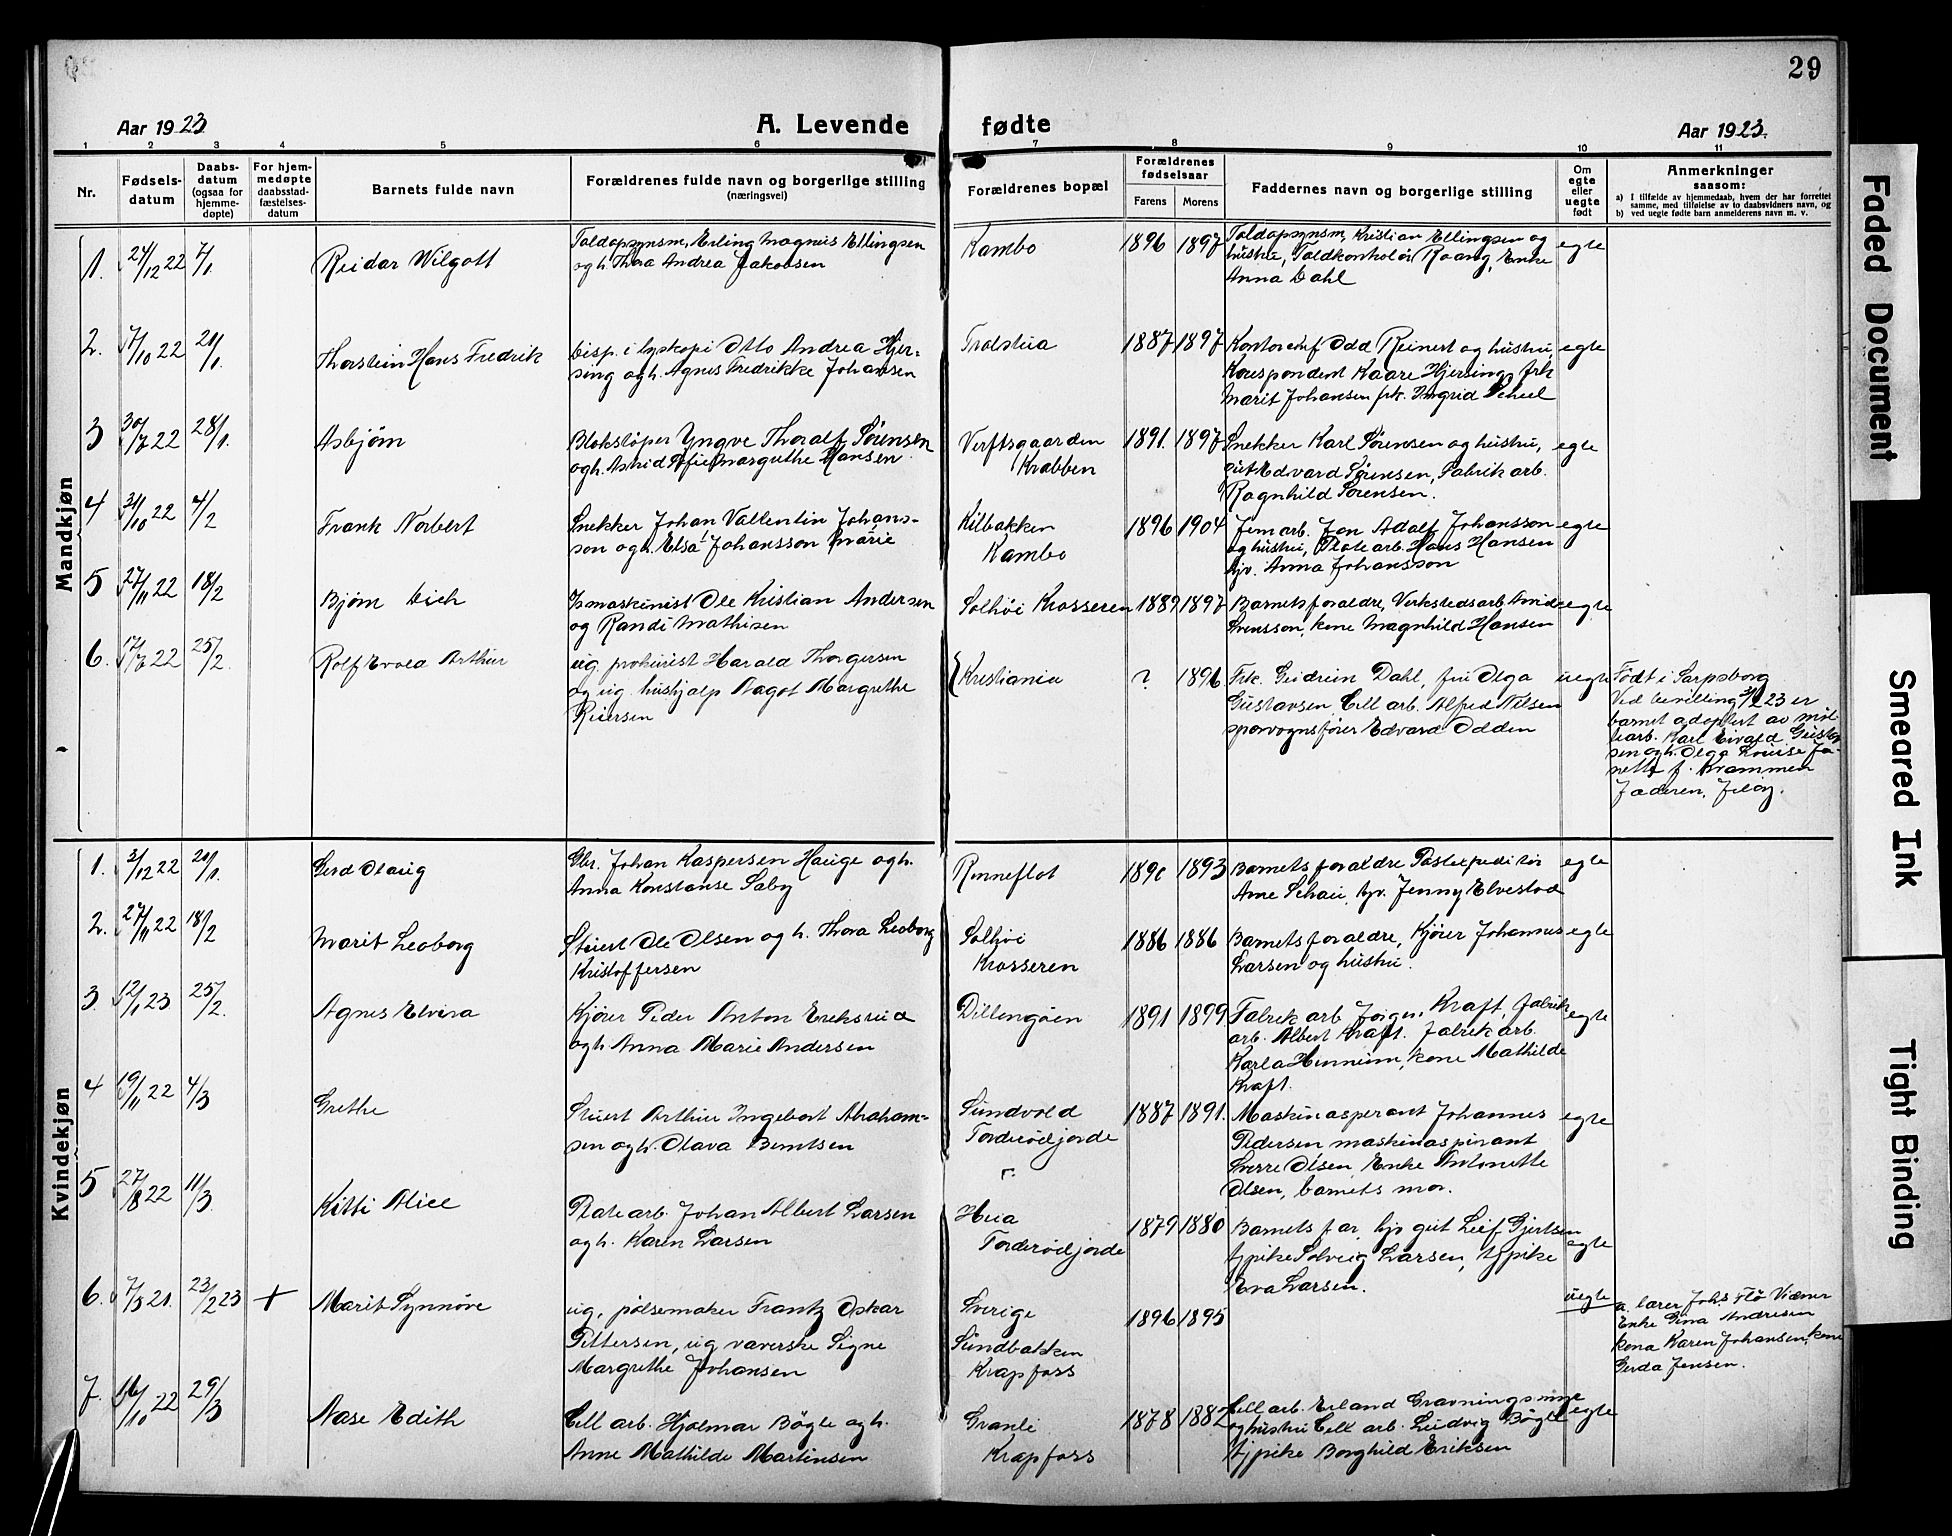 29
Aar 1923
A. Levende
fødte
Aar 1923.
1 2 3 4 5 6 7 8 9 10 11
Nr.
Fødsels-
datum
Daabs-
datum
(ogsaa for
hjemme-
døpte)
For hjem-
medøpte
daabsstad-
fæstelses-
datum
Barnets fulde navn
Forældrenes fulde navn og borgerlige stilling
(næringsvei)
Forældrenes bopæl
Forældrenes
fødselsaar
Farens
Morens
Faddernes navn og borgerlige stilling
Om
egte
eller
uegte
født
Anmerkninger
saasom:
a) I tilfælde av hjemmedaab, hvem der har forrettet
samme, med tilføielse av to daabsvidners navn, og
b) ved uegte fødte barn anmelderens navn m. v.
Mandkjøn
1. 24/12 22 7/1.
Reidar Wilgott
Toldopsynsm. Erling Magnus Ellingsen
og h. Thora Andrea Jakobsen
Kambo
1896 1897
Toldopsynsm. Kristian Ellingsen og
hustru, Toldkontrolør Raang, Enke
Anna Dahl
egte
2. 7/10 22 21/1.
Thorstein Hans Fredrik
bisp. i lyskopi Otto Andrea Hjer-
sing og h. Agnes Fredrikke Johansen
Trolstua
1887 1897
Kontorchef Odd Reinert og hustru,
Korespondent Kaare Hjersing, frk
Marit Johansen frk. Ingrid Scheel
egte
3 30/7 22 28/1.
Asbjørn
Blokstøper Yngve Thoralf Sørensen
og h. Astrid Sofie Margrethe Hansen
Verftsgaarden
Krabben
1891. 1897
Snekker Karl Sørensen og hustru,
gut Edvard Sørensen, Fabrik arb.
Ragnhild Sørensen.
egte
4 31/10 22 4/2
Frank Norbert
Snekker Johan Vallentin Johans-
son og h. Elsa Johansson Marie
Kilbakken
Kambo
1896 1904
Jern arb. Jon Adolf Johansson
og hustru, Plate arb. Hans Hansen
hjv. Anna Johansson
egte
5 27/11 22 18/2
Bjørn Erich
Ismaskinist Ole Kristian Andersen
og Randi Mathisen
Solhøi Krosseren
1889 1897
Barnets foraldre, Verkstedsarb. Arvid
Svensson, kone Magnhild Hansen
egte
6. 17/7 22 25/2.
Rolf Evald Arthur
ug. prokurist Harald Thorgersen
og ug. hushjælp Aagot Margrethe
Reiersen
Kristiania
? 1896
Frk. Gudrun Dahl, fru Olga
Gustavsen, Cell arb. Alfred Nilsen
sporvognsfører Edvard Odden
uegte
Født i Sarpsborg
Ved bevilling 3/2 23 er
barnet adoptert av møl-
learb. Karl Eivald Gustav
sen og h. Olga Louise Ja-
nette f. Krammen
Jaderen, Jeløy.
Kvindekjøn
1. 3/12 22 21/1.
Gerd Olaug
Gbr. Johan Kaspersen Hauge og h.
Anna Konstanse Saby
Renneflot
1890 1893
Barnets foraldre Postexpeditør
Arne Schau, hjv. Jenny Elvestad
egte
2. 27/11 22 18/2
Marit Leoborg
Stuert Ole Olsen og h. Thora Leoborg
Kristoffersen
Solhøi
Krosseren
1886 1886
Barnets foraldre, Kjører Johannes
Larsen og hustru.
egte
3. 12/1 23 25/2.
Agnes Elvira
Kjører Peder Anton Eriksrud
og h. Anna Marie Andersen
Dillengøen
1891 1899
Fabrik arb Jørgen Kraft, fabrik
arb. Albert Kraft. fabrik arb.
Karl a Hennum, kone Mathilde
Kraft.
egte
4 19/11 22 4/3
Grethe
Stuert Arthur Ingebort Abraham-
sen og h. Olava Berntsen
Sundvold
Torderødjorde
1887 1891.
Maskinasperant Johannes
Pedersen maskinaspirant
Sverre Olsen, Enke Antonette
Olsen, barnets mor.
egte
5 27/8 22 11/3.
Kitti Alice
Plate arb. Johan Albert Larsen
og h. Karen Larsen
Heia
Torderødjorde
1879 1880
Barnets far, hjv gut Leif Gjertsen
tjpike Solveig Larsen, tjpike
Eva Larsen.
egte
6. 7/3 21. 23/2 23 +
Marit Synnøve
ug, pølsemaker Frantz Oskar
Pettersen, ug væverske Signe
Margrethe Johansen
Sverige
Sundbakken
Krapfoss
1896 1895
uegte
a. lærer Johs. Flø Vidner
Enke Gina Andresen
kona Karen Johansen, kone
Gerda Jensen.
7. 16/10 22 29/3
Aase Edith
Cell arb. Hjalmar Bøgle og h.
Anne Mathilde Martinsen
Granli
Krapfoss
1878 1882
Cell arb. Erland Gravningsmyr
og hustru Cell arb. Ludvig Bøgle
tjpike Borghild Eriksen
egte
Faded Document
Smeared Ink
Tight Binding